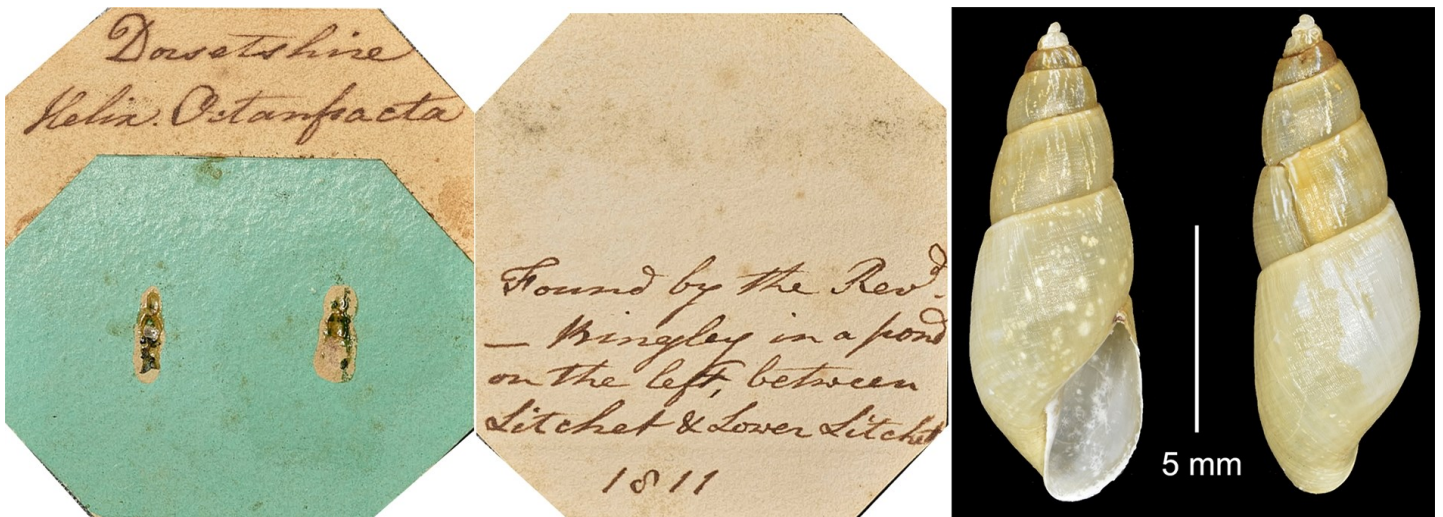 Dorsetshire
Helix. Octanfracta
Found by the Revd.
— Bingley in a pond
on the left, between
Litchet & Lower Litchet
1811
5 mm